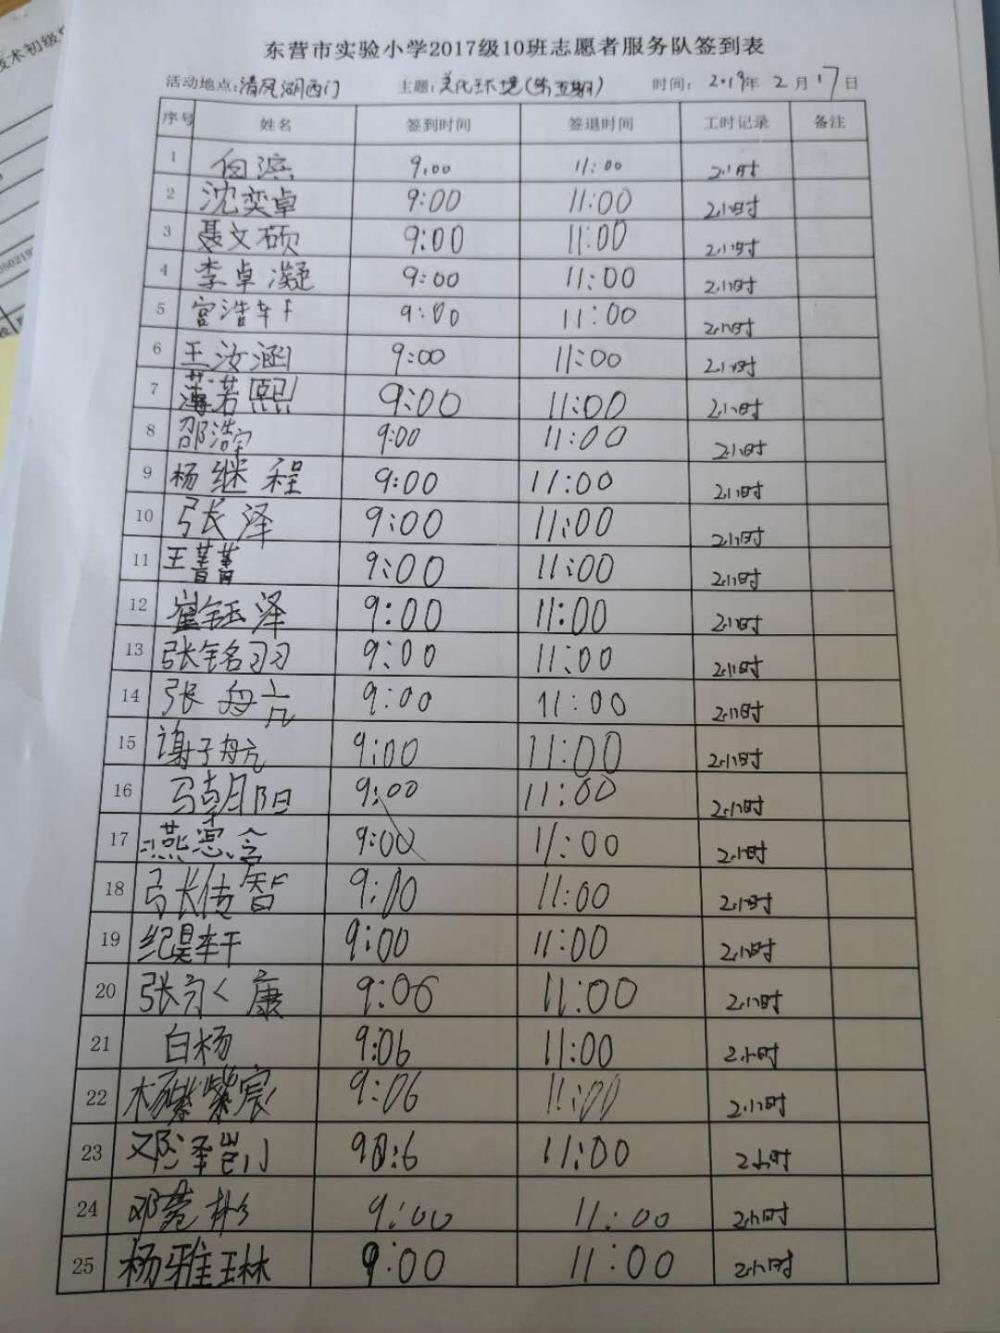 东营市实验小学2017级10班志愿者服务队签到表
活动地点:清风湖西门 主题:美化环境(第五期) 时间:2019年2月17日
序号 姓名 签到时间 签退时间 工时记录 备注
1 9:00 11:00 2小时
2 沈奕卓 9:00 11:00 2小时
3 聂文硕 9:00 11:00 2小时
4 李卓凝 9:00 11:00 2小时
5 宫浩轩 9:00 11:00 2小时
6 王汝涵 9:00 11:00 2小时
7 薄若熙 9:00 11:00 2小时
8 邵浩宇 9:00 11:00 2小时
9 杨继程 9:00 11:00 2小时
10 张泽 9:00 11:00 2小时
11 王菁菁 9:00 11:00 2小时
12 崔钰泽 9:00 11:00 2小时
13 张铭羽 9:00 11:00 2小时
14 张舟亢 9:00 11:00 2小时
15 谢子航 9:00 11:00 2小时
16 马朝阳 9:00 11:00 2小时
17 燕 含 9:00 11:00 2小时
18 张传智 9:00 11:00 2小时
19 纪昊轩 9:00 11:00 2小时
20 张 康 9:06 11:00 2小时
21 白杨 9:06 11:00 2小时
22 紫宸 9:06 11:00 2小时
23 邓泽凯 90:6 11:00 2小时
24 邓 彬 9:00 11:00 2小时
25 杨雅琳 9:00 11:00 2小时